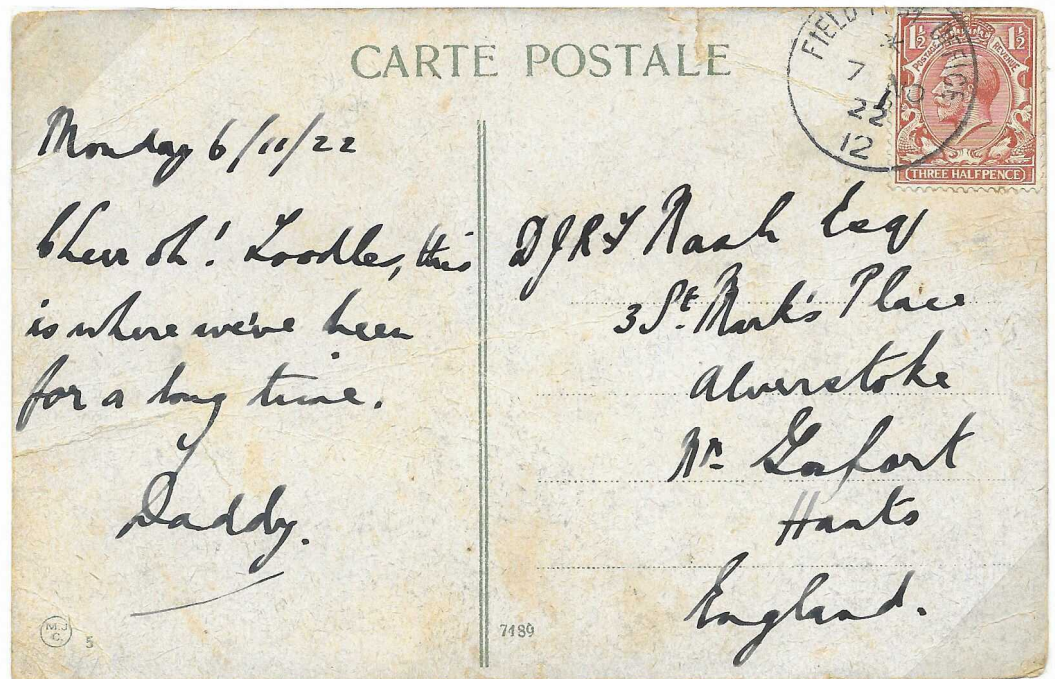 CARTE POSTALE
FIELD POST OFFICE
7 NO
22
12
1½ POSTAGE REVENUE 1½
THREE HALFPENCE
Monday 6/11/22
Cheer oh! Toodles, this
is where we've been
for a long time.
Daddy.
DJRF Nash Esq
3 St. Mark's Place
Alverstoke
Nr. Gosport
Hants
England.
M.J
C.
5
7189